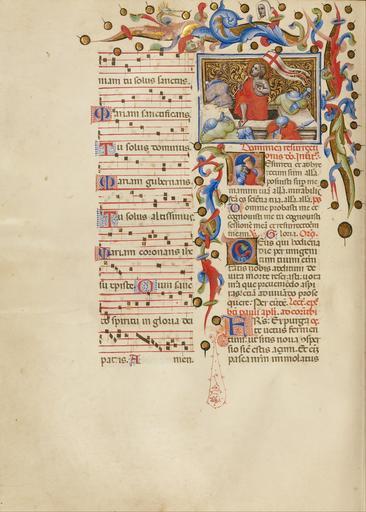 mam tu solus sanctus.
Mariam sanctificans
Tu solus dominus
Mariam gubernans
Tu solus altissimus
Mariam coronans ihe
su christe. Cum sanc
to spiritu in gloria dei
patris. A men.
Dominica resurrecti
onis
Resurrexi et adhuc
tecum sum alla.
posuisti sup me
manum tua alla. mirabilis
Domine probasti me et
cognovisti me tu cognovisti
sessione mea et resurrectione
meam. Gloria. Oro.
Deus qui hodierna
die per unigeni
tum tuum eterni
tatis nobis aditum de
victa morte reserasti. vota
nostra que preveniendo aspi
ras etiam adiuvando prose
quere. Per eunde. Lect. epe
bti pauli apli. ad corinthi
FRS. Expurga
te vetus fermen
tum. ut sitis nova consper
sio sicut estis açimi. Et eni
pasca nrm immolatus